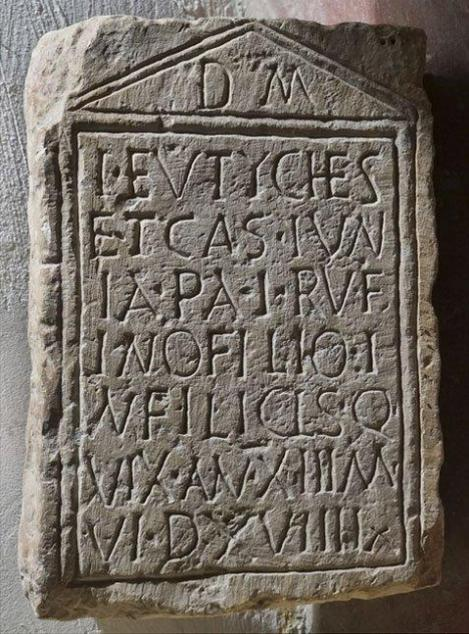 D M
I·EVTYCHES
ETCAS·IVN
IA·PA·I·RVF
INOFILIO·I
NFILICISQ
VIX·AN·XIII M
VI·D·XVIIII